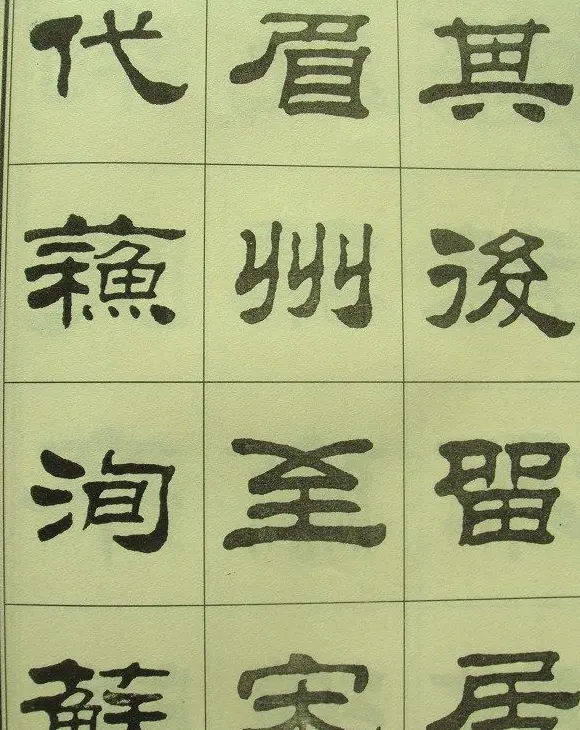 其後留居
眉州至宋
代蘓洵蘇